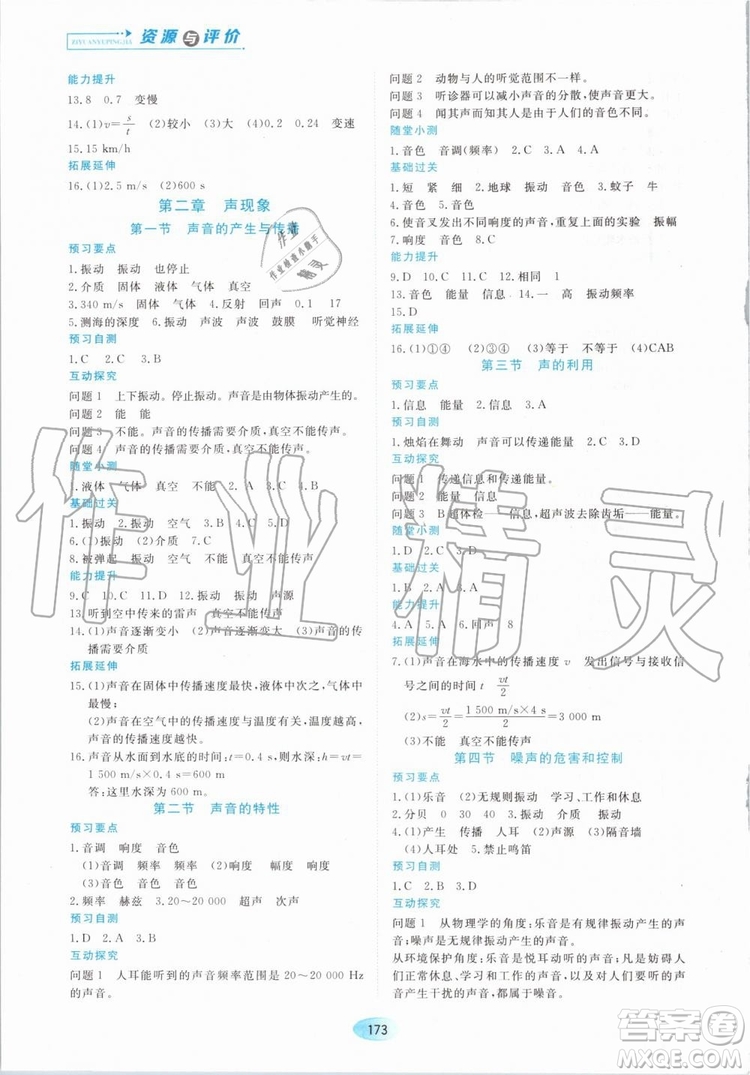 ZIYUANYUPINGJIA
资源与评价
能力提升
13.8 0.7 变慢
14.(1)v=s/t (2)较小 (3)大 0.2 0.24 变速
15.15 km/h
拓展延伸
16.(1)2.5 m/s (2)600 s
第二章 声现象
第一节 声音的产生与传播
预习要点
1.振动 振动 也停止
2.介质 固体 液体 气体 真空
3.340 m/s 固体 气体 4.反射 回声 0.1
5.测海的深度 振动 声波 声波 鼓膜 听觉神经
预习自测
1.C 2.C 3.D
互动探究
问题1 上下振动。停止振动。声音是由物体振动产生的。
问题2 能 能
问题3 不能。声音的传播需要介质,真空不能传声。
问题4 声音的传播需要介质,真空不能传声。
随堂小测
1.液体 气体 真空
基础过关
1.振动 2.振动 空气
6.(1)振动 (2)介质 7.
8.被弹起 振动 空气 不能
能力提升
9.C 10.D 11.振动 振动 声源
13.听到空中传来的雷声 真空不能传声
14.声音逐渐变小 (2)声音逐渐变大 (3)声音的传播需要介质
拓展延伸
15.(1)声音在固体中传播速度最快,液体中次之,气体中最慢;
(2)声音在空气中的传播速度与温度有关,温度越高,声音的传播速度越快。
16.声音从水面到水底的时间t=0.4 s,则水深:h=vt=
1 500 m/s×0.4 s=600 m
答:这里的水深是600 m
第二节 声音的特性
预习要点
1.音调 响度 音色
(1)音调 频率 频率 (2)响度 幅度 响度
(3)音色
2.频率 赫兹 3.20~20 000 超声 次声
预习自测
1.D 2.A 3.D
互动探究
问题1 人耳能听到的声音频率范围是20~20 000 Hz
的声音。
问题2 动物与人的听觉范围不一样。
问题3 听诊器可以减小声音的分散,增大响度。
问题4 闻其声而知其人,说明每个人的音色不同。
随堂小测
1.音色 音调(频率) 2.C 3.C 4.D
基础过关
1.短 紧 细 2.地球 振动 3.音色 4.蚊子 牛
6.使音叉发出不同响度的声音,重复上面的实验 振幅
7.响度 音色 8.C
能力提升
9.D 10.D 11.C 12.相同 1
13.音色 能量 信息 14.一 高 振动频率
15.B
拓展延伸
16.(1)①④ (2)③④ (3)等于 不等于 (4)CAB
第三节 声的利用
预习要点
1.信息 能量 2.信息 3.A
预习自测
1.烛焰在舞动 声音可以传递能量 2.C 3.D
互动探究
问题1 传递信息和传递能量。
问题2 信息 能量
问题3 B超体检——信息,超声波去除齿垢——能量。
随堂小测
1.D
基础过关
1.B 2.A
能力提升
4.A 5.A 6.回声 8
拓展延伸
7.(1)声音在海水中的传播速度v 发出信号与接收信号的时间t vt/2
(2)s=vt/2=1 500 m/s×4 s/2=3 000 m
(3)不能 真空不能传声
第四节 噪声的危害和控制
预习要点
1.(1)乐音 (2)无规则振动 学习、工作和休息
2.分贝 0 30 40 3.振动
4.(1)产生 传播 人耳 (2)声源 (3)隔音墙
(4)人耳处 5.禁止鸣笛
预习自测
1.C 2.B 3.A 4.D
互动探究
问题1 从物理学的角度:乐音是有规律振动产生的声
音;噪声是无规律振动产生的声音。
从环境保护角度:乐音是悦耳动听的声音;凡是妨碍人
们正常休息、学习和工作的声音,以及对人们要听的声
音产生干扰的声音,都属于噪音。
173
作业精灵
答案圈
MXQE.COM